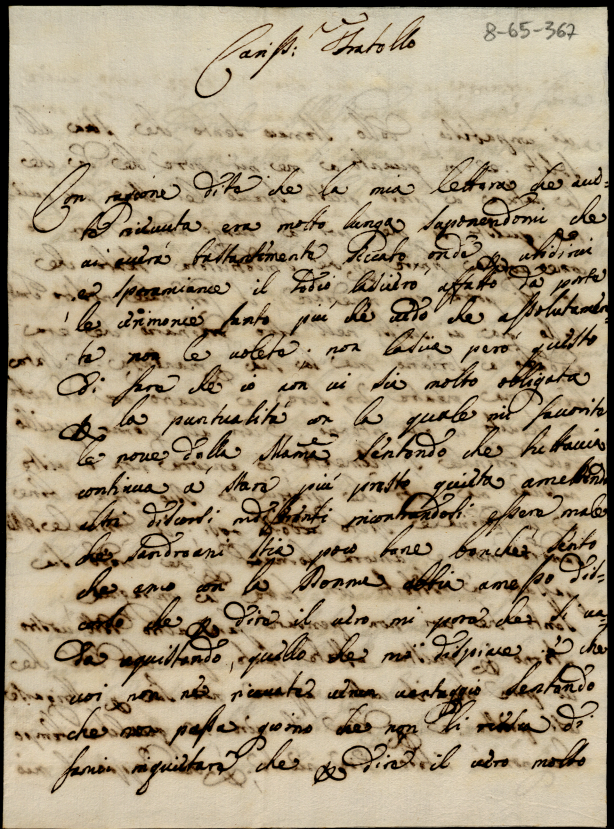 8-65-367
Cariss: Fratello
Con ragione dite che la mia lettera che aue=
te riceuuta era molto lunga suponendomi che
ui auerà bastantemente seccato onde ubidirui
e sparamiarue il tedio lascierò affatto da parte
le cerimonie tanto più che uedo che assolutamen
te non le uolete. non lascie però questo
di fare che io non ui sia molto obligata
p la puntualità con la quale mi fauorite
le noue della Mama sentendo che tuttauia
continua à stare più presto quieta amettendo
altri discorsi essere male
che stia poco bene benche sento
che anco con la Nonna abbia amesso dis=
corsi che p dire il uero mi pare che si ua=
da aquistando, quello che mi dispiace è che
uoi non ne riceuete uerun uantaggio sentendo
che non passa giorno che non li di
farui inquietare che p dire il uero molto